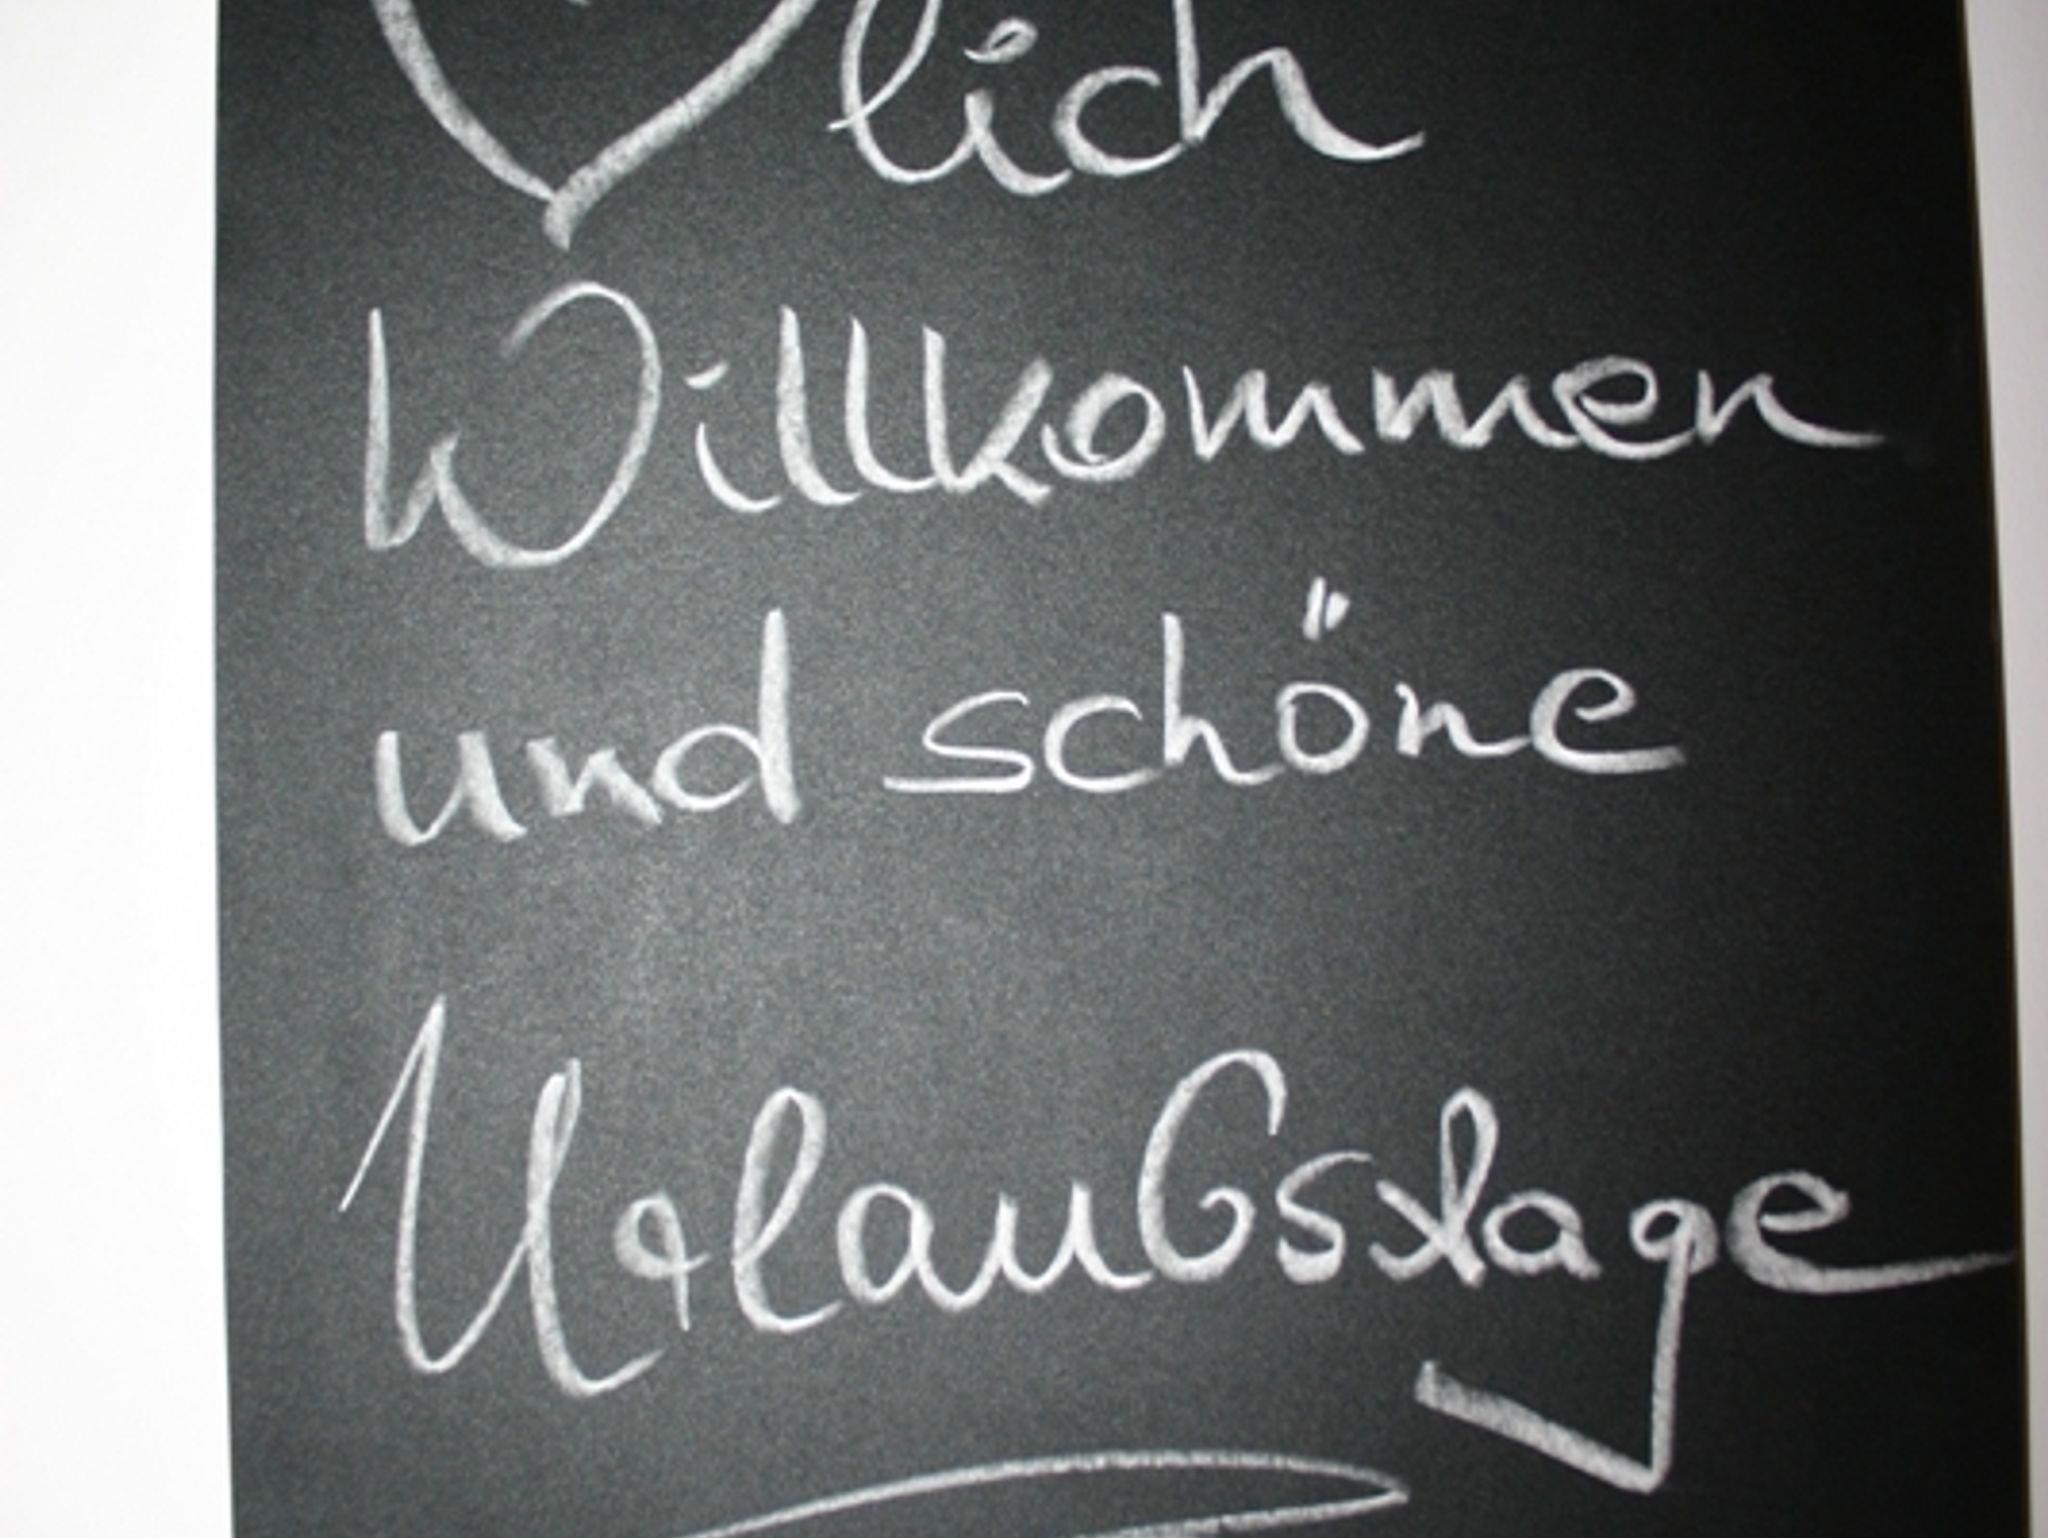 lich
Willkommen
und schöne
Urlaubstage